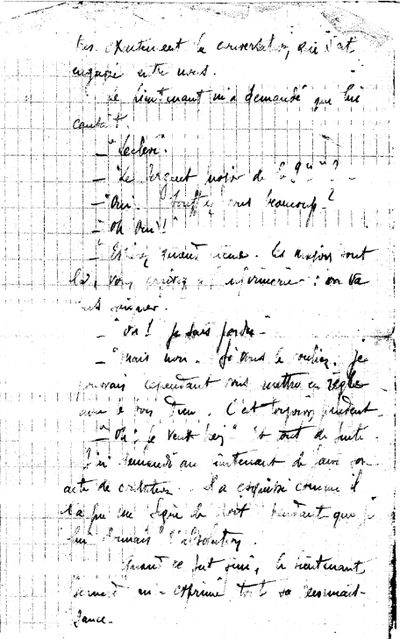 très exactement la conversation, qui s'est
engagée entre nous.
Le lieutenant m'a demandé que lui
- "Leclerc".
- "Le sergent major de la g^in ?
- "Oui. Souffrez vous beaucoup ?
- "Oh oui !"
- quand même. Les majors sont
là, vous infirmerie : on va
vous soigner.
- "Oh ! Je suis perdu -
- "Mais non. Je vous le Je
pourrais cependant vous mettre en règle
avec le bon Dieu. C'est toujours prudent -
- "Oh ! Je veux bien" Et tout de suite.
J'ai demandé au lieutenant de faire son
acte de contrition. Il a esquissé comme il
l'a pu une signe de pendant que je
lui donnais l'absolution.
Quand ce fut fini, le lieutenant
m'exprimé toute sa reconnais-
sance -